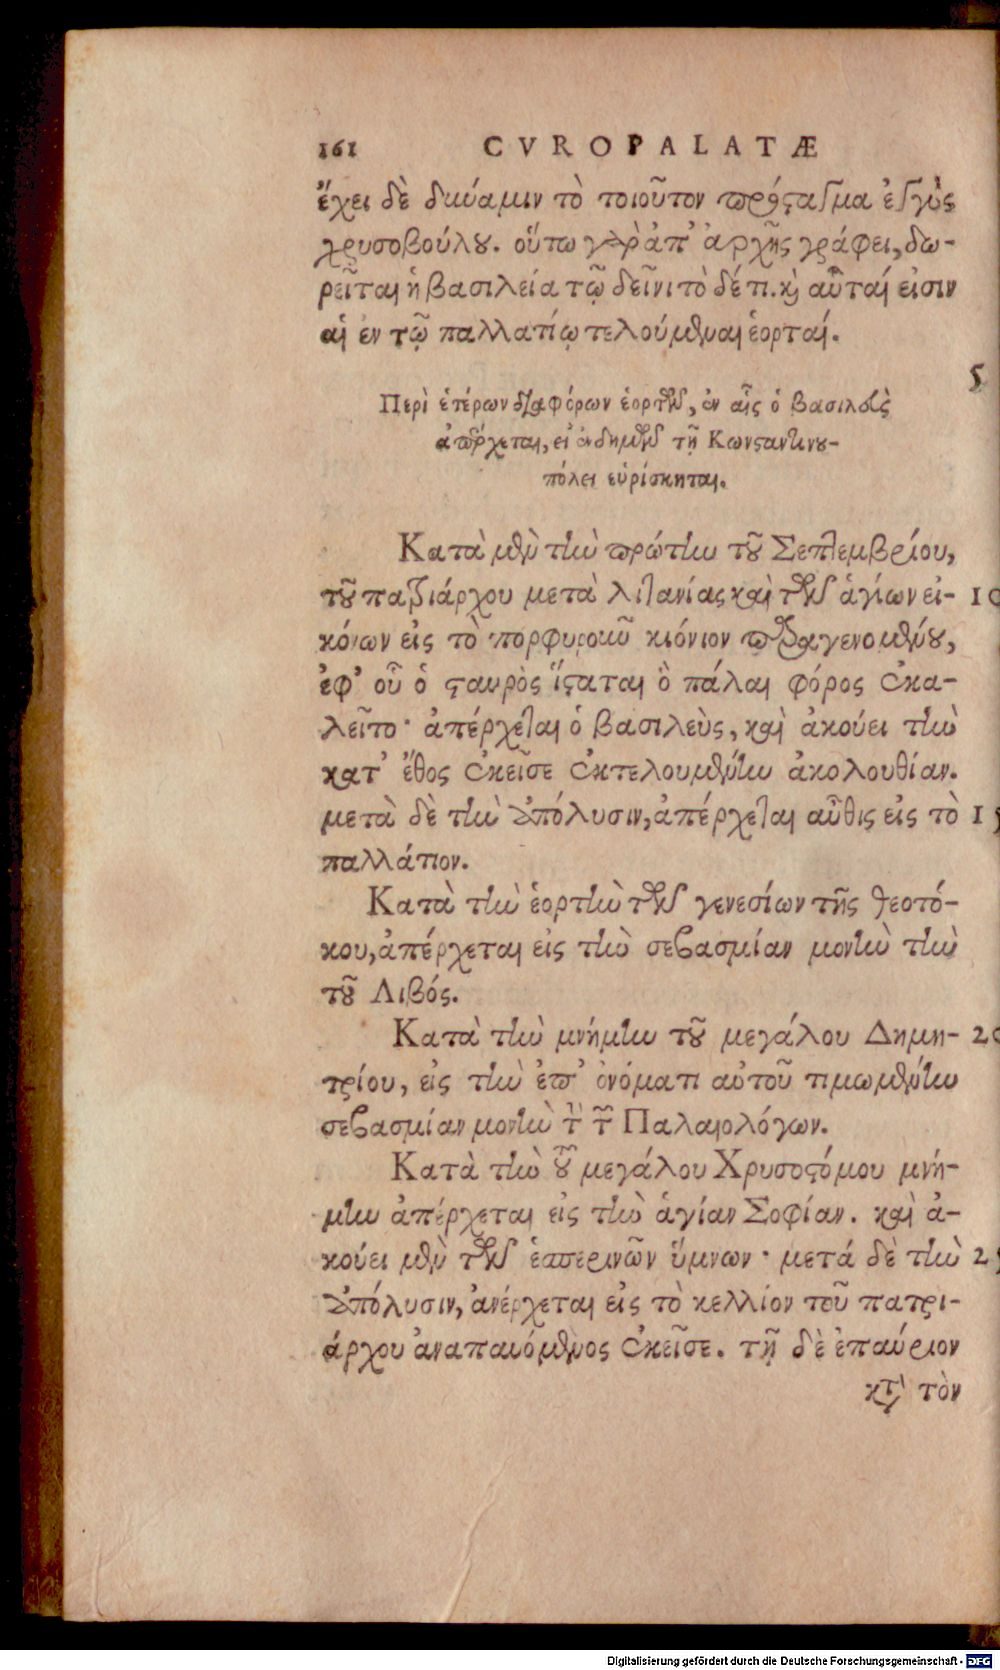 161 CVROPALATÆ
ἔχει δὲ δύναμιν τὸ τοιοῦτον πρόσταγμα ἐγγὺς
χρυσοβούλου. οὕτω γὰρ ἀπ' ἀρχῆς γράφει, δω-
ρεῖται ἡ βασιλεία τῷ δεῖνι τὸ δέ τι. καὶ αὗταί εἰσιν
αἱ ἐν τῷ παλλατίῳ τελούμεναι ἑορταί.
5
Περὶ ἑτέρων διαφόρων ἑορτῶν, ἐν αἷς ὁ βασιλεὺς
ἀπέρχεται, εἰ ἐνδημῶν τῇ Κωνσταντινου-
πόλει εὑρίσκηται.
Κατὰ μὲν τὴν πρώτην τοῦ Σεπτεμβρίου,
τοῦ πατριάρχου μετὰ λιτανίας καὶ τῶν ἁγίων εἰ- 10
κόνων εἰς τὸ πορφυροῦν κιόνιον παραγενομένου,
ἐφ' οὗ ὁ σταυρὸς ἵσταται ὃ πάλαι φόρος ἐκα-
λεῖτο· ἀπέρχεται ὁ βασιλεὺς, καὶ ἀκούει τὴν
κατ' ἔθος ἐκεῖσε ἐκτελουμένην ἀκολουθίαν.
μετὰ δὲ τὴν ἀπόλυσιν, ἀπέρχεται αὖθις εἰς τὸ 15
παλλάτιον.
Κατὰ τὴν ἑορτὴν τῶν γενεσίων τῆς θεοτό-
κου, ἀπέρχεται εἰς τὴν σεβασμίαν μονὴν τὴν
τοῦ Λιβός.
Κατὰ τὴν μνήμην τοῦ μεγάλου Δημη- 20
τρίου, εἰς τὴν ἐπ' ὀνόματι αὐτοῦ τιμωμένην
σεβασμίαν μονὴν τὴν τῶν Παλαιολόγων.
Κατὰ τὴν τοῦ μεγάλου Χρυσοστόμου μνή-
μην ἀπέρχεται εἰς τὴν ἁγίαν Σοφίαν. καὶ ἀ-
κούει μὲν τῶν ἑσπερινῶν ὕμνων· μετά δὲ τὴν 25
ἀπόλυσιν, ἀνέρχεται εἰς τὸ κελλίον τοῦ πατρι-
άρχου ἀναπαυόμενος ἐκεῖσε. τῇ δὲ ἐπαύριον
κατὰ τὸν
Digitalisierung gefördert durch die Deutsche Forschungsgemeinschaft - DFG